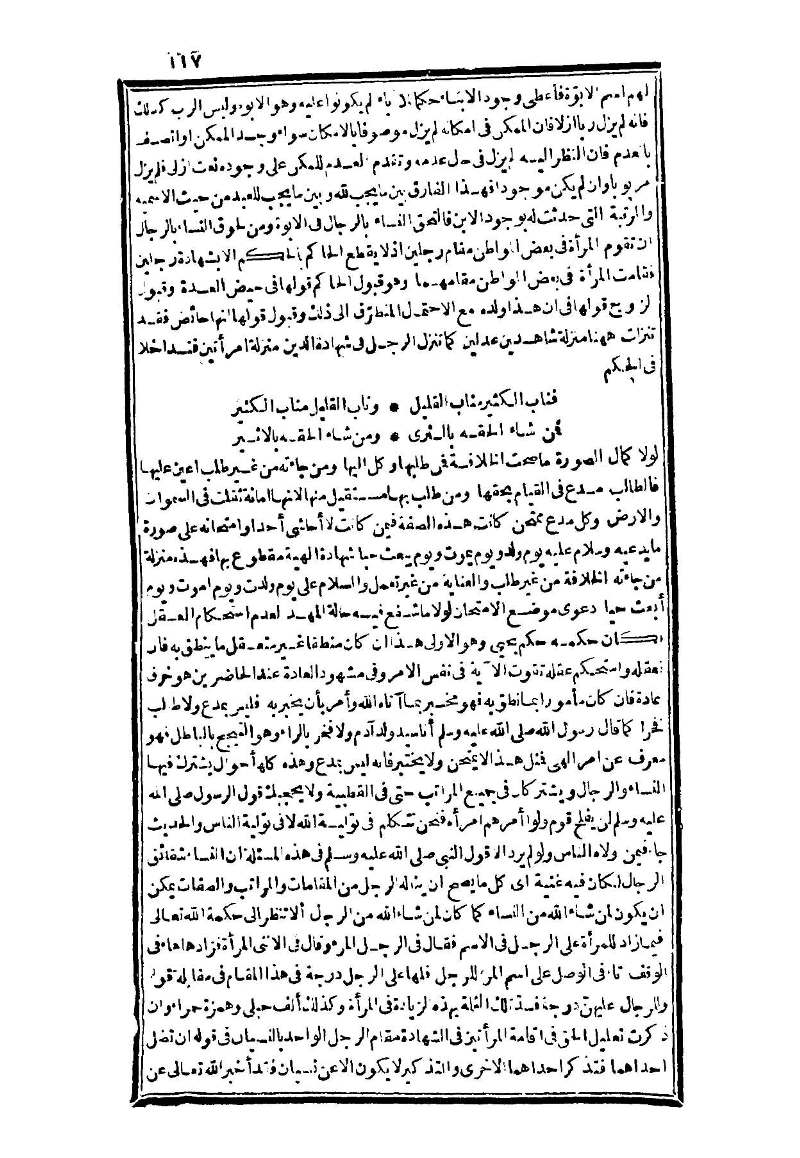 ١١٧
لهم اسم الابوّة فأعطى وجود الابناء حكما للآباء لم يكونوا عليه وهو الابوة وليس الرب كذلك
فانه لم يزل ربا ازلا فان الممكن فى امكانه لم يزل موصوفا بالامكان سواء وجد الممكن او اتصف
بالعدم فان النظر اليه لم يزل فى حال عدمه وتقدم العدم للممكن على وجوده نعت ازلى فلم يزل
مربوبا وان لم يكن موجودا فهذا الفارق بين ما يجب لله وبين ما يجب للعبد من حيث الاسمية
والمرتبة التى حدثت له بوجود الابن فالتحق النساء بالرجال فى الابوة ومن لحوق النساء بالرجال
ان تقوم المرأة فى بعض المواطن مقام رجلين اذ لا يقطع الحاكم بالحكم الا بشهادة رجلين
فقامت المرأة فى بعض المواطن مقامهما وهو قبول الحاكم قولها فى حيض العدة وقبول
الزوج قولها فى ان هذا ولده مع الاحتمال المتطرّق الى ذلك وقبول قولها انها حائض فقد
تنزلت ههنا منزلة شاهدين عدلين كما تنزل الرجل فى شهادة الدين منزلة امرأتين فتداخلا
فى الحكم
فناب الكثير مناب القليل * وناب القليل مناب الكثير
فمن شاء الحقه بالثرى * ومن شاء الحقه بالاثير
لولا كمال الصورة ما صحت الخلافة فمن طلبها وكل اليها ومن جاءته من غير طلب اعين عليها
فالطالب مدع فى القيام بحقها ومن طلب بها مستقيل منها لانها امانة ثقلت فى السموات
والارض وكل مدع ممتحن كانت هذه الصفة فيمن كانت لا أحاشى أحدا وامتحانه على صورة
ما يدعيه وسلام عليه يوم ولد ويوم يموت ويوم يبعث حيا شهادة الهية مقطوع بها فهذه منزلة
من جاءته الخلافة من غير طلب والعناية من غير تعمل والسلام على يوم ولدت ويوم اموت ويوم
أبعث حيا دعوى موضع الامتحان لولا ما شفع فيه حالة المهد لعدم استحكام العقل
لكان حكمه حكم يحيى وهو الاولى هذا ان كان منطقا غير متعقل ما ينطق به فان
تعقله واستحكم عقله تقوت الآية فى نفس الامر وفى مشهود العادة عند الحاضرين هو خرق
عادة فان كان مأمورا بما نطق به فهو مخبر بما آتاه الله وأمر بأن يخبر به فليس بمدع ولا طالب
فخرا كما قال رسول الله صلى الله عليه وسلم أنا سيد ولد آدم ولا فخر بالراء وهو التبجح بالباطل فهو
معرف عن امر الهى فمثل هذا لا يمتحن ولا يختبر فانه ليس بمدع وهذه كلها أحوال يشترك فيها
النساء والرجال ويشتركان فى جميع المراتب حتى فى القطبية ولا يحجبك قول الرسول صلى الله
عليه وسلم لن يفلح قوم ولوا أمرهم امرأة فنحن نتكلم فى تولية الله لا فى تولية الناس والحديث
جاء فيمن ولاه الناس ولو لم يرد الا قول النبى صلى الله عليه وسلم فى هذه المسئلة ان النساء شقائق
الرجال لكان فيه غنية اى كل ما يصح ان يناله الرجل من المقامات والمراتب والصفات يمكن
ان يكون لمن شاء الله من النساء كما كان لمن شاء الله من الرجال ألا تنظر الى حكمة الله تعالى
فيما زاد للمرأة على الرجل فى الاسم فقال فى الرجل المرء وقال فى الانثى المرأة فزادها هاء فى
الوقف تاء فى الوصل على اسم المرء للرجل فلها على الرجل درجة فى هذا المقام فى مقابلة قوله
وللرجال عليهن درجة فسد تلك الثلمة بهذه الزيادة فى المرأة وكذلك ألف حبلى وهمزة حمراء وان
ذكرت تعليل الحق فى اقامة المرأتين فى الشهادة مقام الرجل الواحد بالنسيان فى قوله ان تضل
احداهما فتذكر احداهما الاخرى والتذكير لا يكون الا عن نسيان فقد أخبر الله تعالى عن